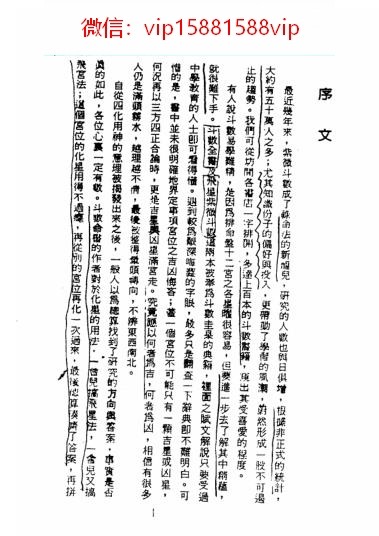 微信：vip15881588vip
序文
最近幾年來，紫微斗數成了錄命法的新寵兒，研究的人數也與日俱增，根據非正式的統計，
大約有五十萬人之多；尤其知識份子的偏好與投入，更帶動了學習的風潮，蔚然形成一股不可遏
止的趨勢。我們可從坊間各書店一字排開，多達上百本的斗數書籍，現出其受喜愛的程度。
有人說斗數易學難精，是因爲排命盤十二宮之各星曜很容易，但要進一步去了解其中精蘊，
就很難下手。斗數全書及飛星紫微斗數這兩本被奉爲斗數圭臬的典籍，裡面之賦文解說只要受過
中學教育的人士即可看得懂。遇到較爲艱深晦澀的字眼，最多只是翻查一下辭典即不難明白。可
惜的是，書中並未很明確地界定事項宮位之吉凶悔吝；蓋一個宮位不可能只有一顆吉星或凶星，
何況再以三方四正合論時，更是吉星與凶星滿宮走。究竟應以何者爲吉，何者爲凶，相信有很多
人仍是滿頭霧水，越理越不清，最後被搞得暈頭轉向，不辨東西南北。
自從四化用神的意理被揭發出來之後，一般人以爲總算找到了研究的方向與答案，事實是否
眞的如此，各位心裏一定有數。斗數命書的作者對於化星的用法，一會兒搞飛星法，一會兒又搞
飛宮法；這個宮位的化星用得不過癮，再從別的宮位再化一次過來，最後總算湊齊了答案，再拼
1